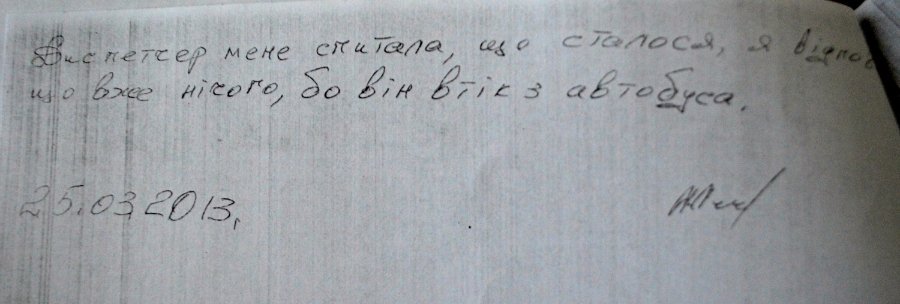 Диспетчер мене спитала, що сталося, я відпов
що вже нічого, бо він втік з автобуса.
25.03.2013,